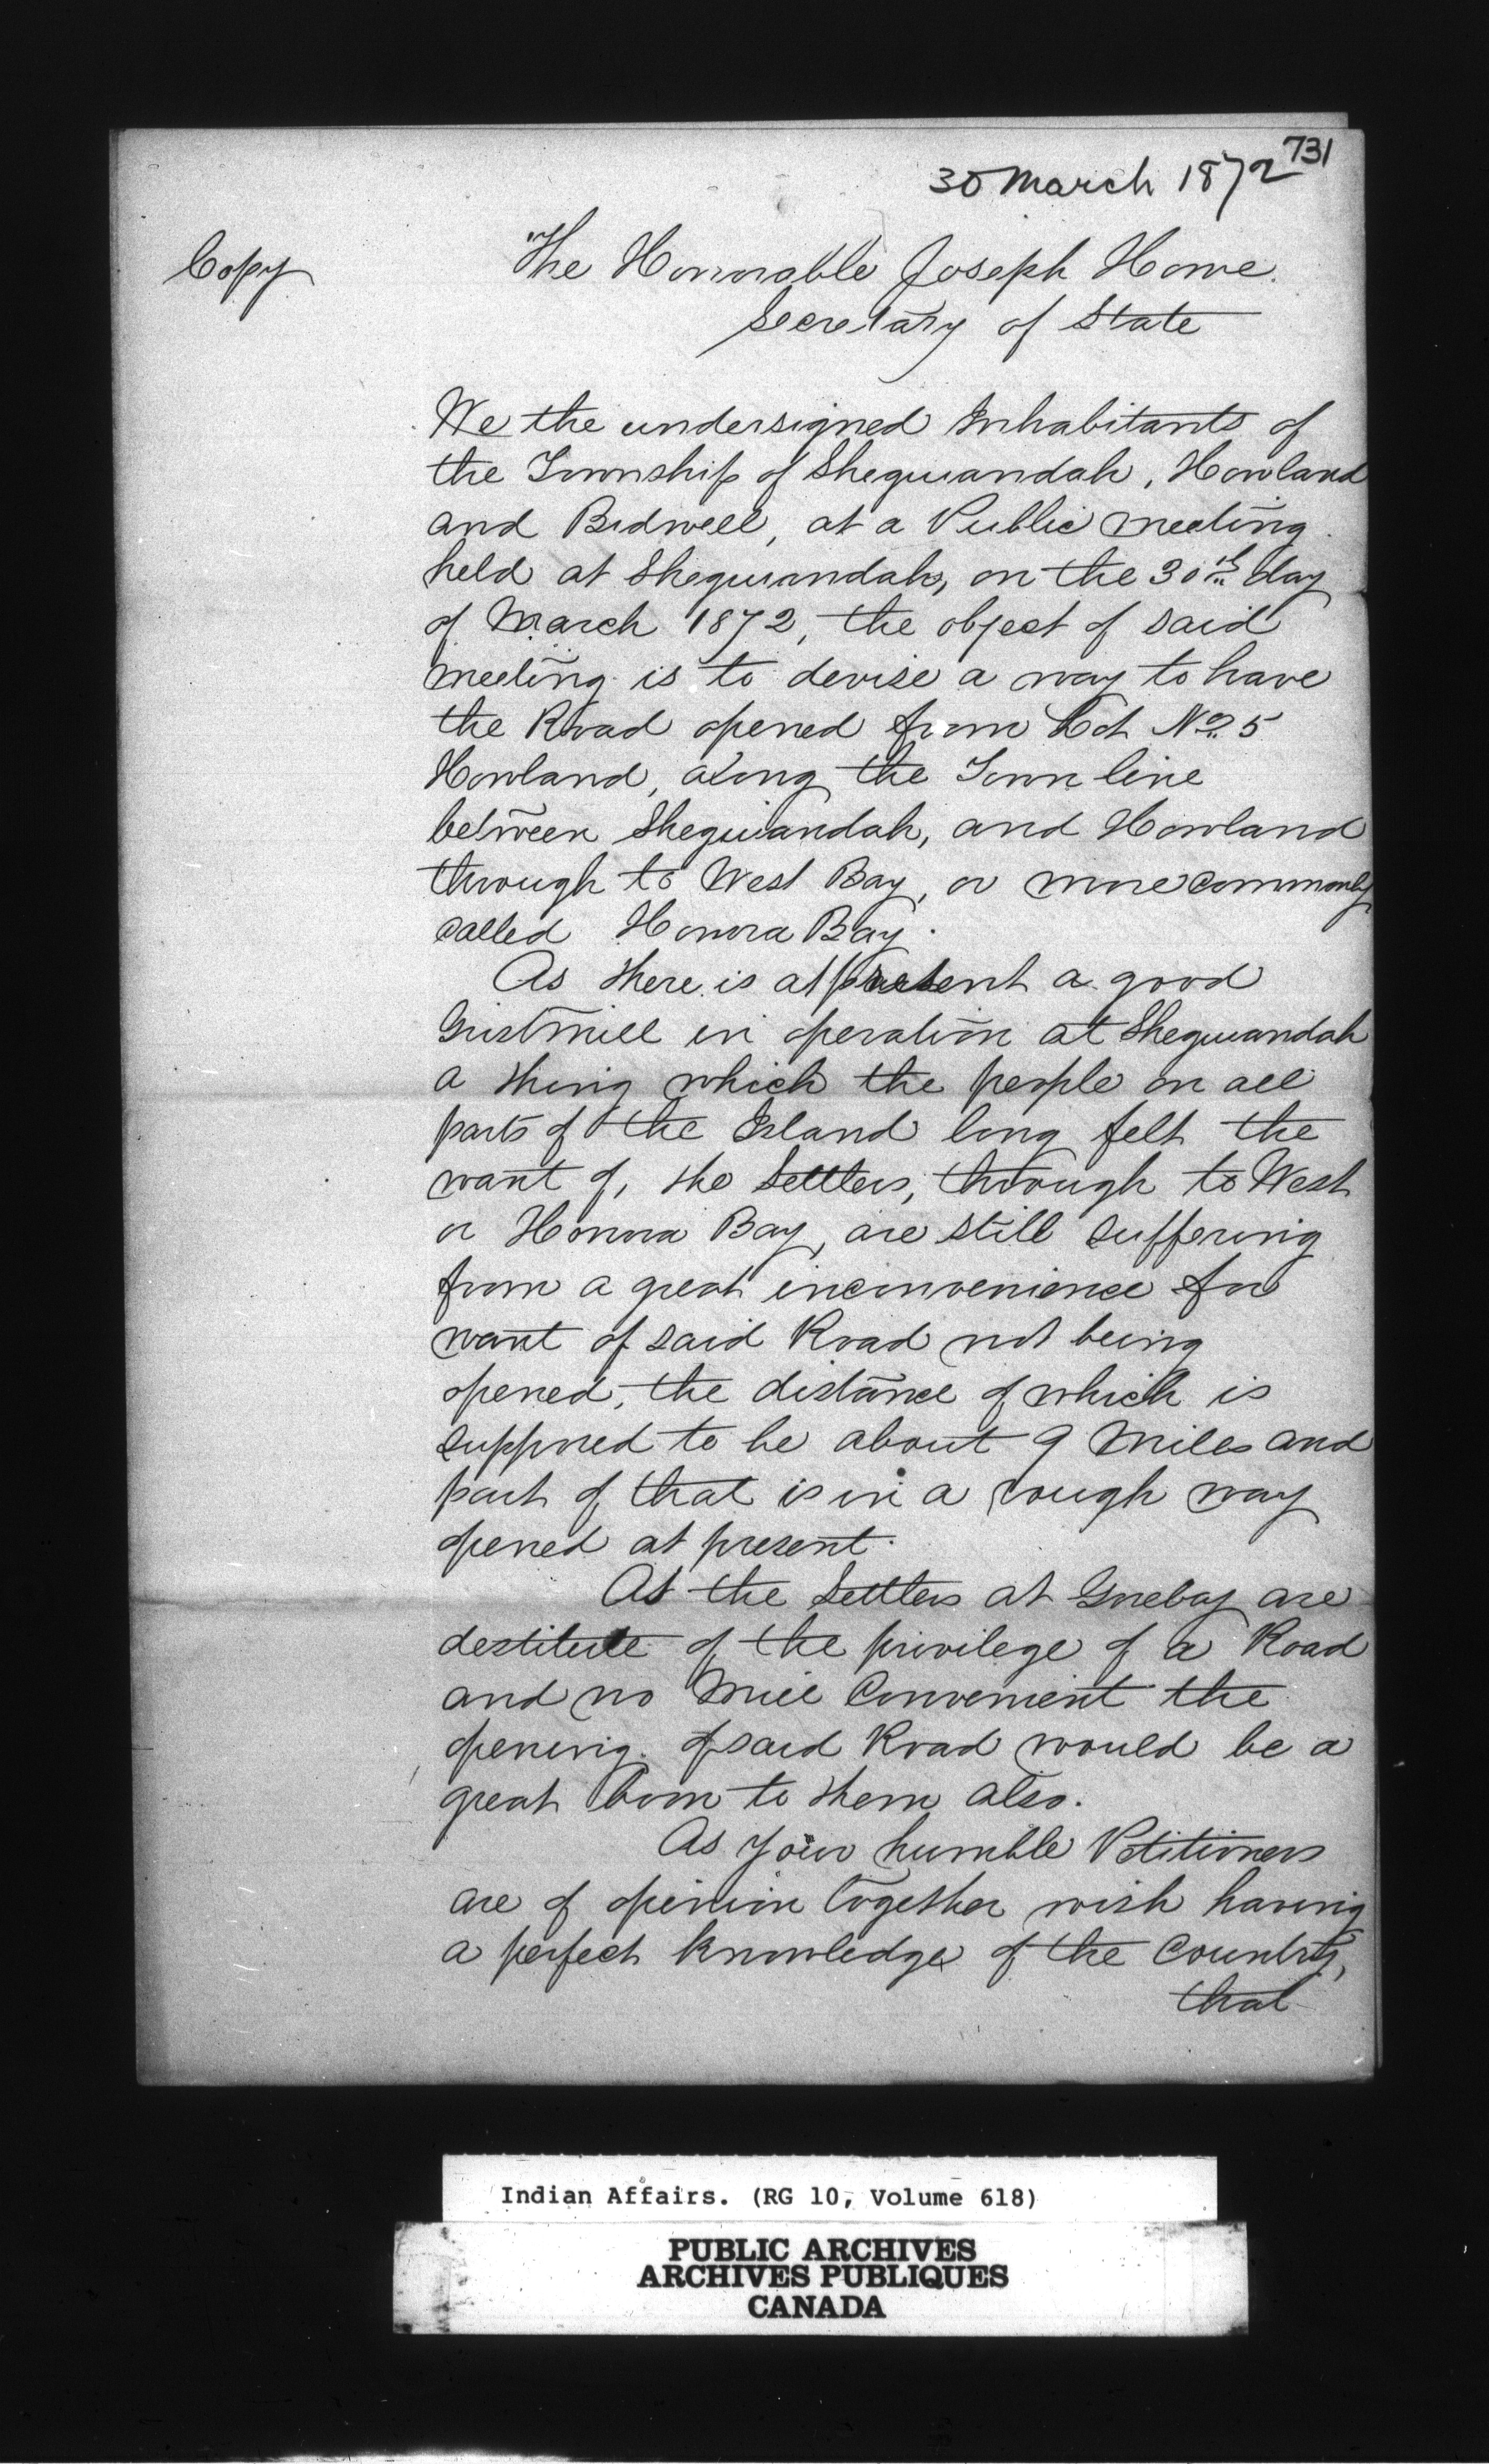 731
30 March 1872
Copy
"The Honorable Joseph Howe.
Secretary of State
We the undersigned Inhabitants of
the Township of Sheguiandah, Howland
and Bidwell, at a Public meeting
held at Sheguiandah, on the 30th day
of March 1872, the object of said
meeting is to devise a way to have
the Road opened from Lot No. 5
Howland, along the Town line
between Sheguiandah, and Howland
through to West Bay, or more commonly
called Honora Bay.
As there is at present a good
Gristmill in operation at Sheguiandah
a thing which the people on all
parts of the Island long felt the
want of, the Settlers, through to West
or Honora Bay, are still suffering
from a great inconvenience for
want of said Road not being
opened, the distance of which is
supposed to be about 9 Miles and
part of that is in a rough way
opened at present.
As the Settlers at Gorebay are
destitute of the privilege of a Road
and no Mill Convenient the
opening of said Road would be a
great boon to them also.
As your humble Petitioners
are of opinion together with having
a perfect knowledge of the Country,
that
Indian Affairs. (RG 10, Volume 618)
PUBLIC ARCHIVES
ARCHIVES PUBLIQUES
CANADA